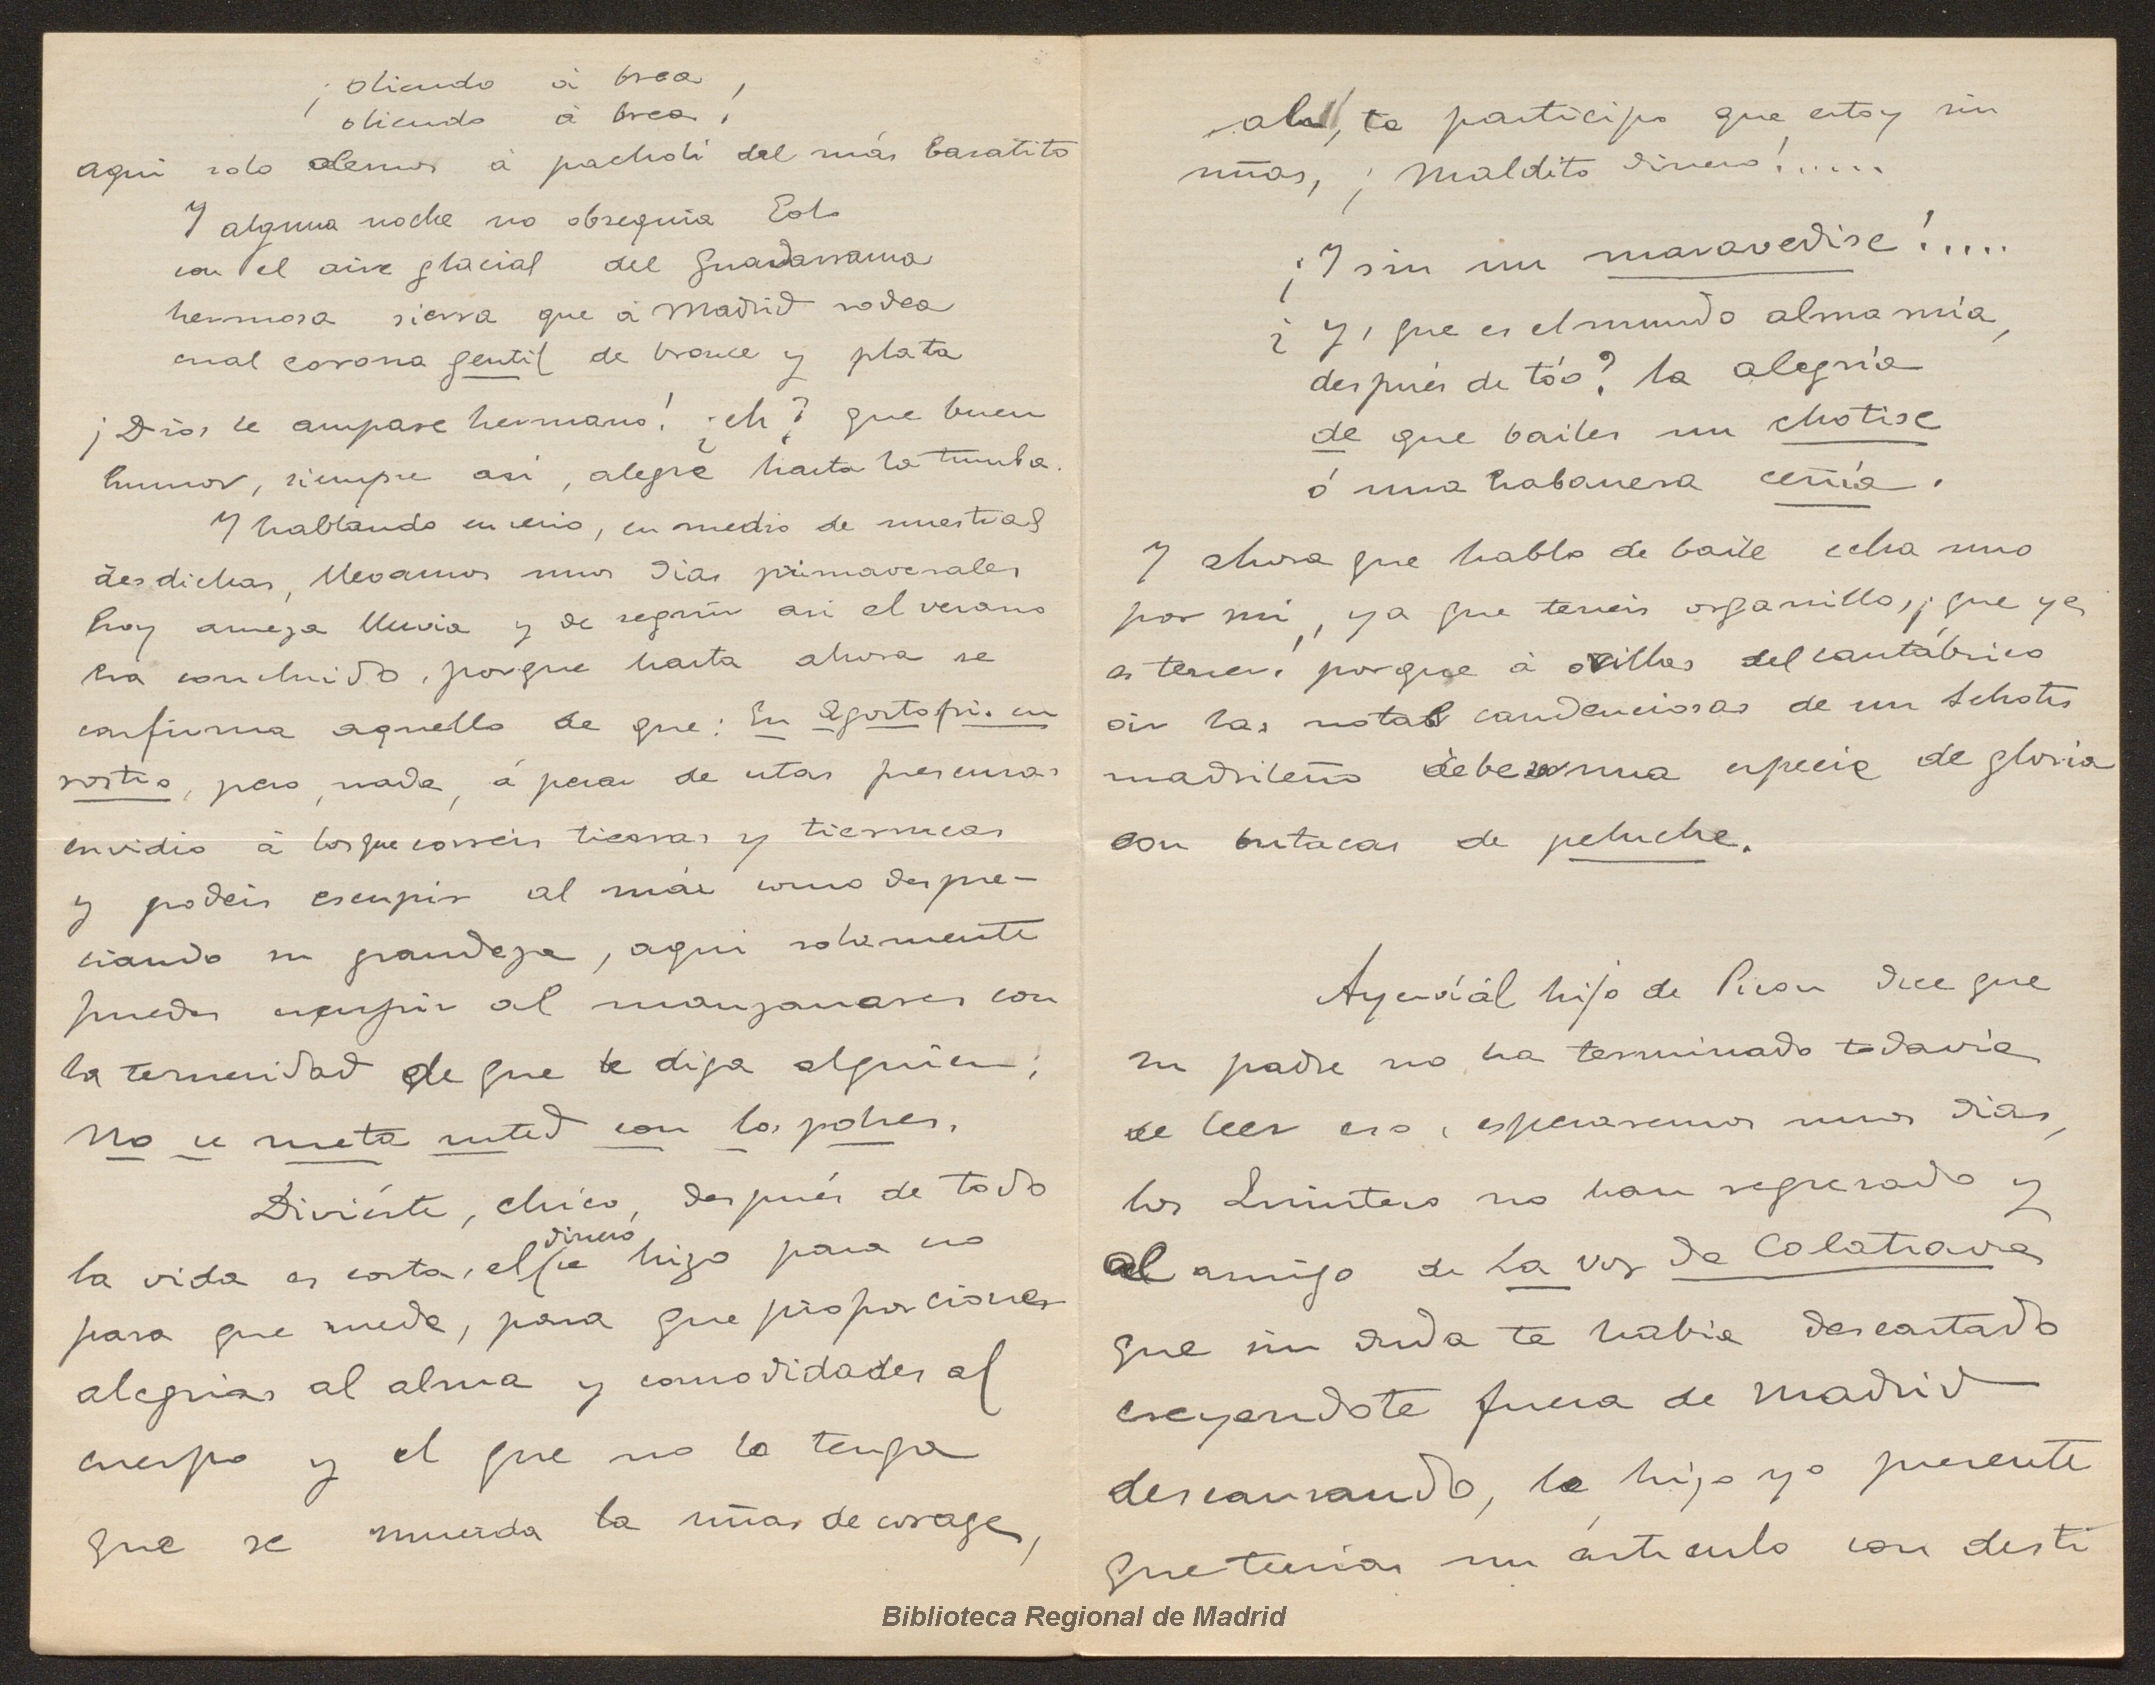 ¡oliendo á brea,
oliendo á brea!
aqui solo olemos á pacholi del más baratito
Y alguna noche no obsequia Eolo
con el aire glacial del Guadarrama
hermosa sierra que á Madrid rodea
cual corona gentil de bronce y plata
¡Dios te ampare hermano! ¿eh? que buen
humor, siempre asi, alegre hasta la tumba.
Y hablando en serio, en medio de nuestras
desdichas, llevamos unos dias primaverales
hoy ameza lluvia y de seguir asi el verano
ha concluido, porque hasta ahora se
confirma aquello de que: En Agosto frio en
rostro, pero, nada, á pesar de estas frescuras
envidio á los que correis tierras y tierrucas
y podeis escupir al mar como despre-
ciando su grandeza, aqui solamente
puedes escupir al manzanares con
la temeridad de que te diga alguien;
No se meta usted con los pobres.
Diviérte, chico, después de todo
dinero
la vida es corta, el se hizo para eso
para que ruede, para que proporciones
alegrias al alma y comodidades al
cuerpo y el que no lo tenga
que se muerda la uñas de corage,
te participo que estoy sin
uñas, ¡Maldito dinero!.....
¡Y sin un maravedise!....
¿Y, que es el mundo alma mía,
después de tóo? la alegría
de que bailes un chotise
ó una habanera ceñía.
Y ahora que hablo de baile echa uno
por mi, ya que teneis organillo, ¡que ya
es tener! porque á orillas del cantábrico
oir las notas candenciosas de un Schotis
madrileño debe ser una especie de gloria
con butacas de peluche.
Ayer ví ál hijo de Picon dice que
su padre no ha terminado todavia
de leer eso, esperaremos unos dias,
los Quinteros no han regresado y
al amigo de La voz de Calatrava
que sin duda te habia descartado
creyendote fuera de Madrid
descansando, le hize yo presente
que tenias un artículo con desti
Biblioteca Regional de Madrid